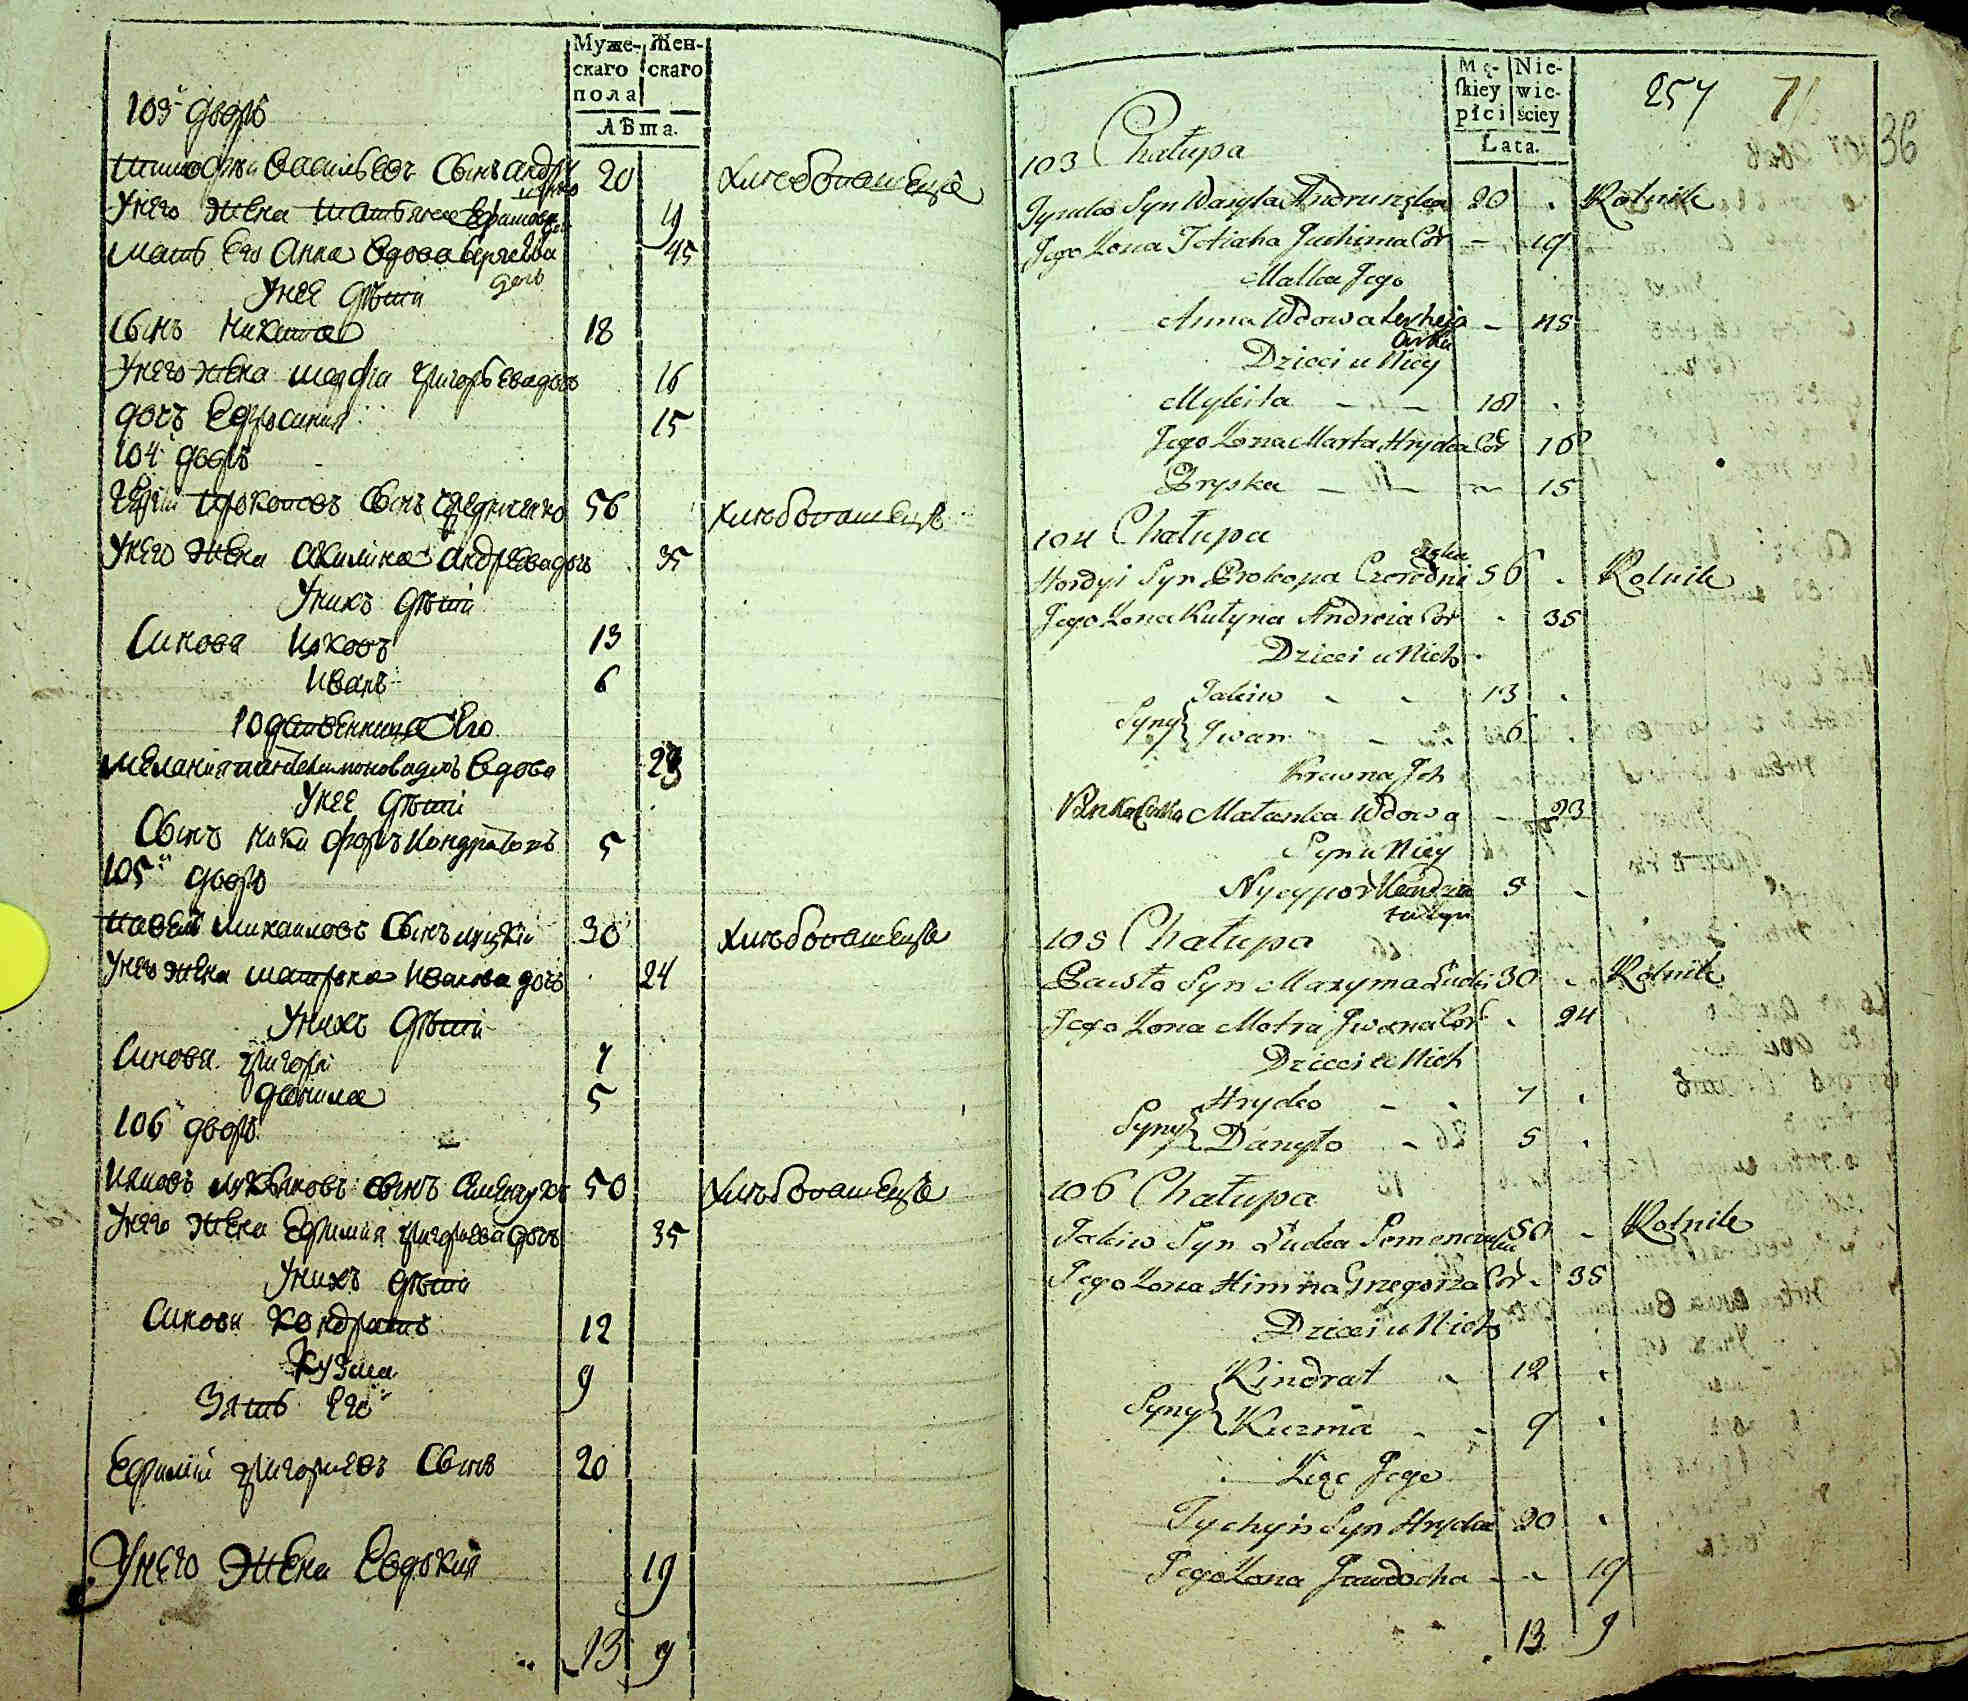 Муже-
скаго
пола
Жен-
скаго
Лѣта.
103й дворъ
Тимофѣй Васильевъ Сынъ 20 хлѣбопашецъ
У него жена Татьяна 19
Мать Его Анна Вдова Сергѣева дочь 45
У нее дѣти
Сынъ Никита 18
У него жена Марфа Григорьева дочь 16
дочъ Ефросиния 15
104й дворъ
Прокоповъ Сынъ 56 хлѣбопашецъ
У него жена Акилина Андреева дочь 35
У нихъ дѣти
Синовя Яковъ 13
Иванъ 6
Родственница Его
Мелания Пантелимонова дочъ Вдова 23
У нее дѣти
Сынъ Никифоръ Кондратовъ 5
105й дворъ
Павелъ Михаиловъ Сынъ Луцкій 30 хлѣбопашецъ
У него жена Матрона Иванова дочъ 24
У нихъ дѣти
Синовя Григорій 7
Данила 5
106й дворъ
Яковъ Лукьяновъ сынъ Семенчукъ 50 хлѣбопашецъ
У него жена Ефимия Григориева дочъ 35
У нихъ дѣти
Синови Кондратъ 12
Кузма 9
Зять Его
Ефимій Григориевъ Сынъ 20
У него жена Евдокия 19
13 9
Mę-
skiey
płci
Nie-
wie-
ściey
Lata.
257 71
36
103 Chałupa
Tymko Syn Wasyla Andruszka 20 Rolnik
Jego Zona Tetiana Juchima Cór 19
Matka Jego
Anna Wdowa Serheja Curka 45
Dzieci u Niey
Mykita 18
Jego Zona Marta Hryćka Cór 16
Pryska 15
104 Chałupa
Hordyi Syn Prokopa Czeredniczka 56 Rolnik
Jego Zona Kulyna Andreia Cór 35
Dzieci u Nich
Jakiw 13
Syny Jwan 6
Krewna Jch
Małanka Wdowa 23
Syn u Niey
Nyczypor Kondrata Syn 5
105 Chałupa
Pawło Syn Maxyma Łucki 30 Rolnik
Jego Zona Motra Jwana Cór 24
Dzieci u Nich
Hryćko 7
Syny Danyło 5
106 Chałupa
Jakiw Syn Łucka Semenczuka 50 Rolnik
Jego Zona Himna Grzegorza Cór 35
Dzieci u Nich
Kindrat 12
Syny Kuzma 9
Zięć Jego
Tychyn Syn Hryćka 20
Jego Zona Jawdocha 19
13 9